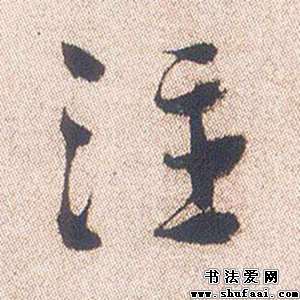 注
书法爱网
www.shufaai.com